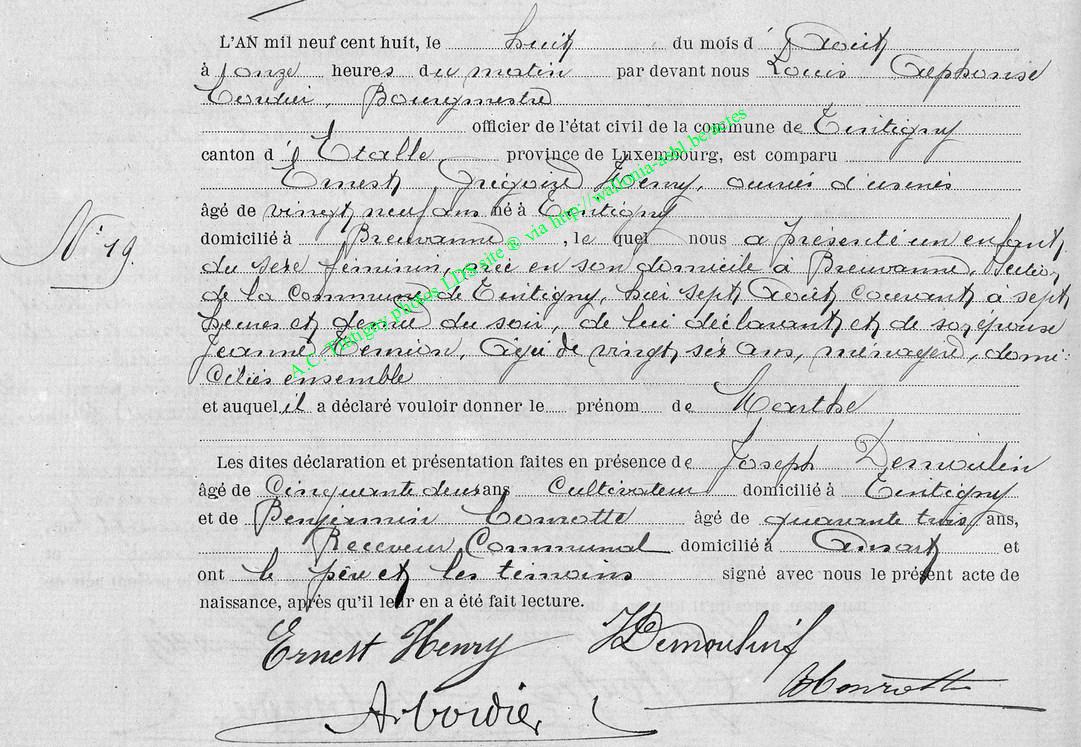 L'AN mil neuf cent huit, le huit du mois d'Août
à onze heures du matin par devant nous Louis Alphonse
Cordier, Bourgmestre
officier de l'état civil de la commune de Tintigny
canton d'Etalle province de Luxembourg, est comparu
Ernest Grégoire Henry, ouvrier d'usines
âgé de vingt neuf ans né à Tintigny
N° 19.
domicilié à Breuvanne, le quel nous a présenté un enfant
du sexe féminin, née en son domicile à Breuvanne, Section
de la Commune de Tintigny, hier sept Août courant à sept
heures et demie du soir, de lui déclarant et de son épouse
Jeanne, âgée de vingt six ans, ménagère, domi-
ciliés ensemble
et auquel il a déclaré vouloir donner le prénom de Marthe
Les dites déclaration et présentation faites en présence de Joseph Demoulin
âgé de Cinquante deux ans Cultivateur domicilié à Tintigny
et de Benjamin Conrotte âgé de quarante trois ans,
Receveur Communal domicilié à Ansart et
ont le père et les témoins signé avec nous le présent acte de
naissance, après qu'il leur en a été fait lecture.
Ernest Henry JDemoulin
BConrotte
A. Cordier
A.C. Tintigny photos LDS site ® via http://wallonia-asbl.be/actes